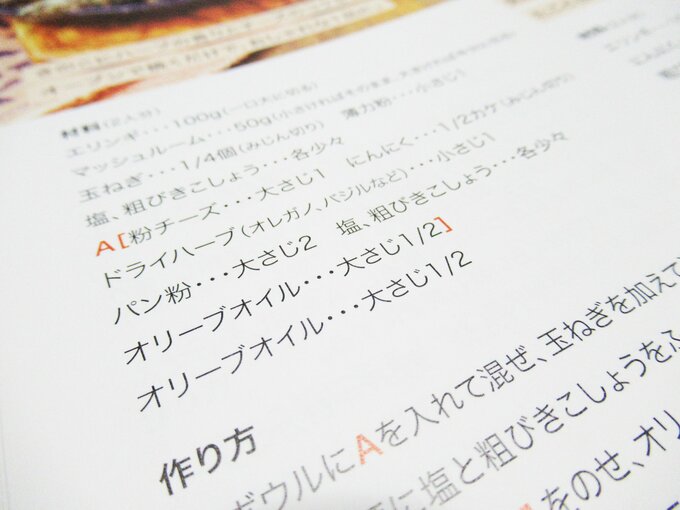 オーブンで焼くだけで
材料(2人分)
エリンギ・・・100g(一口大に切る)
マッシュルーム・・・50g(小さければそのまま、大きければ半分に切る)
玉ねぎ・・・1/4個(みじん切り) 薄力粉・・・小さじ1
塩、粗びきこしょう・・・各少々 にんにく・・・1/2カケ(みじん切り)
A[粉チーズ・・・大さじ1
ドライハーブ(オレガノ、バジルなど)・・・小さじ1
パン粉・・・大さじ2 塩、粗びきこしょう・・・各少々
オリーブオイル・・・大さじ1/2]
オリーブオイル・・・大さじ1/2
作り方
ボウルにAを入れて混ぜ、玉ねぎを加えて
に塩と粗びきこしょうをふ
をのせ、オリ